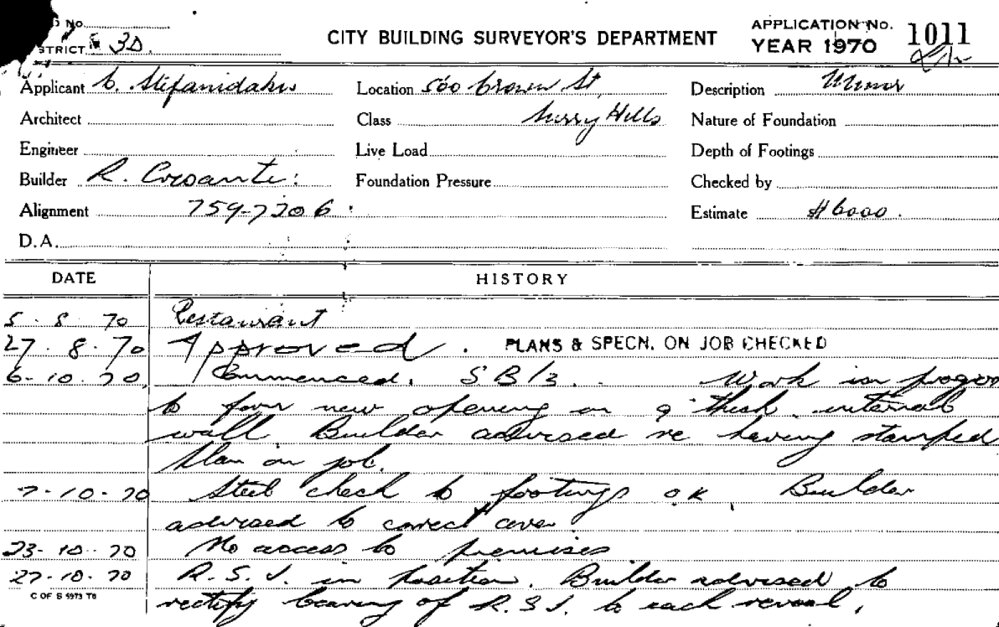 No.
CITY BUILDING SURVEYOR'S DEPARTMENT
APPLICATION No. 1011
YEAR 1970
STRICT 3D.
Applicant C. Stefanidakis
Location 560 Crown St,
Description Minor
Architect
Class Surry Hills
Nature of Foundation
Engineer
Live Load
Depth of Footings
Builder R.
Foundation Pressure
Checked by
Alignment 759-7206
Estimate $6000.
D.A.
DATE HISTORY
5-8-70 Restaurant
27.8.70 Approved. PLANS & SPECN. ON JOB CHECKED
6-10-70 Commenced. SB/3. Work in progress
to form new opening in 9" thick internal
wall. Builder advised re having stamped
plan on job.
7-10-70 Steel check to footings OK. Builder
advised to correct cover
23-10-70 No access to premises
27-10-70 R.S.J. in position. Builder advised to
C OF S 5973 TB
rectify bearing of R.S.J. to each reveal.